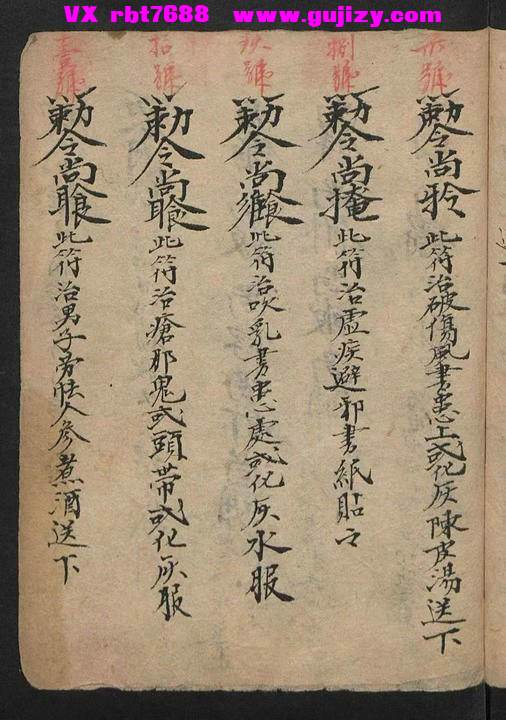 VX rbt7688 www.gujizy.com
號
勅令尚 此符治破傷風書患上或化灰陳皮湯送下
捌號
勅令尚掩 此符治虛疾避邪書紙貼之
玖號
勅令尚 此符治吹乳書患處或化灰水服
拾號
勅令尚 此符治瘡邪鬼或頭帶或化灰服
壹號
勅令尚 此符治男子勞怯人參煮酒送下